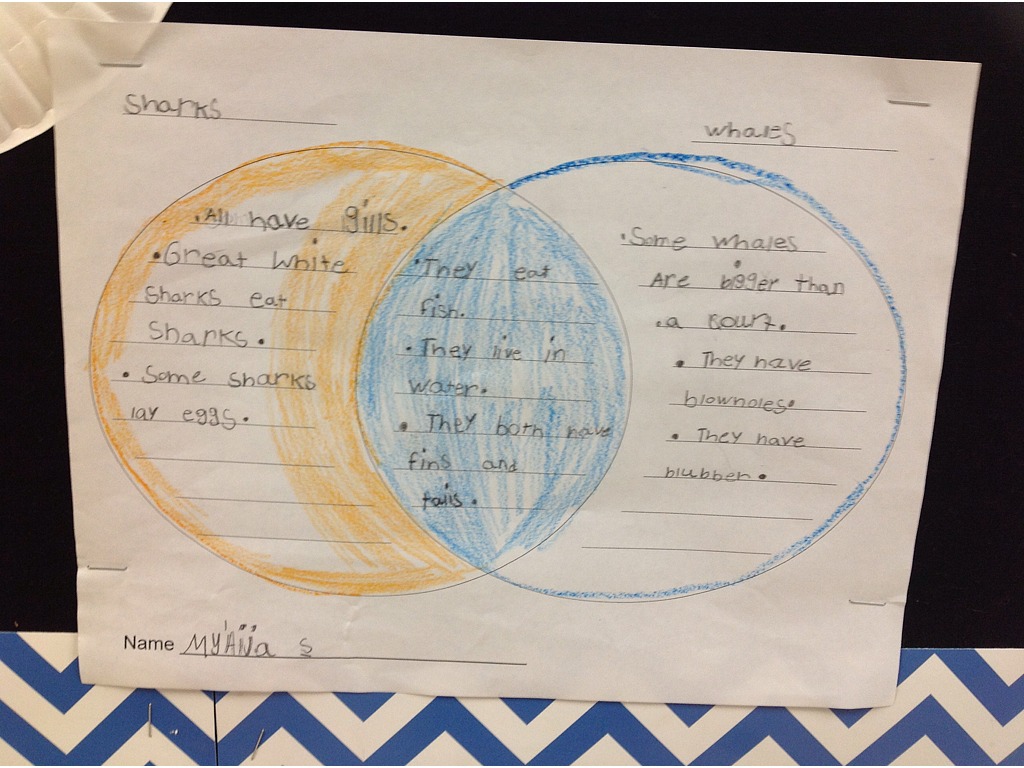 Sharks
whales
.All have gills.
.Great White
Sharks eat
Sharks.
. Some sharks
lay eggs.
.They eat
fish.
.They live in
water.
. They both have
fins and
tails.
.Some whales
Are bigger than
.a
. They have
blowholes.
. They have
blubber.
Name